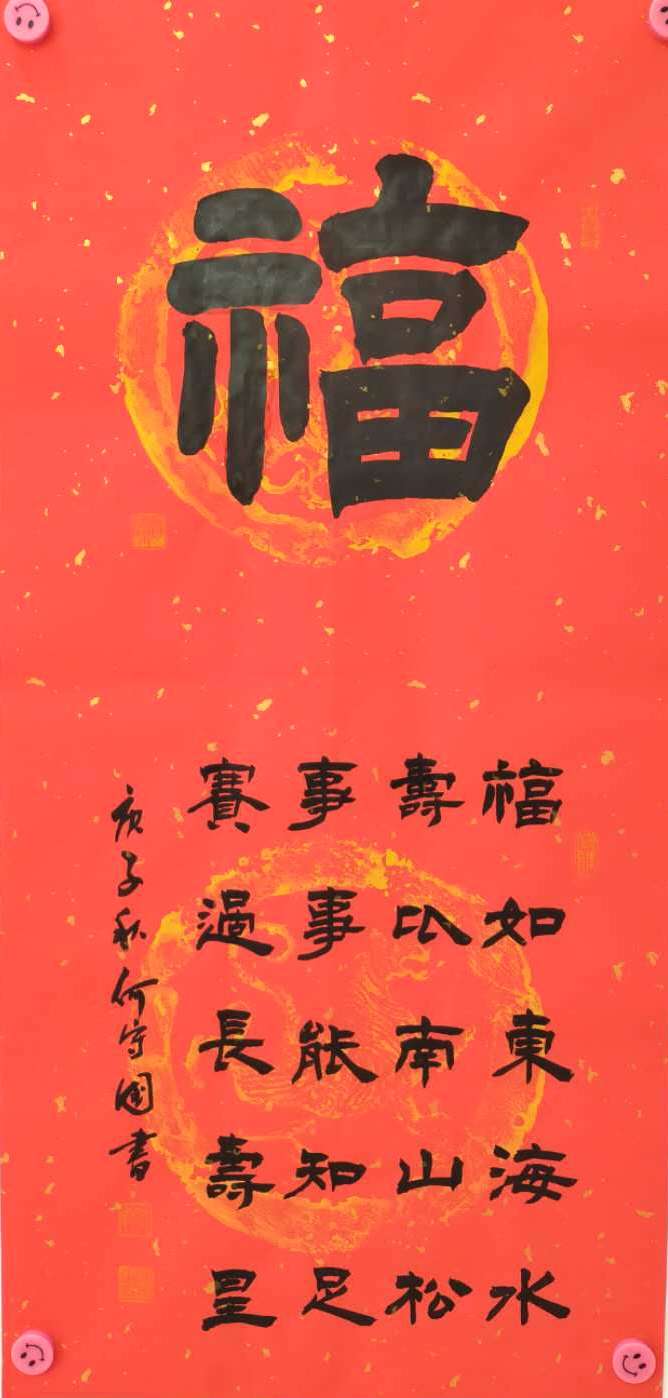 福
福如東海水
壽比南山松
事事能知足
賽過長壽星
庚子秋何守國書